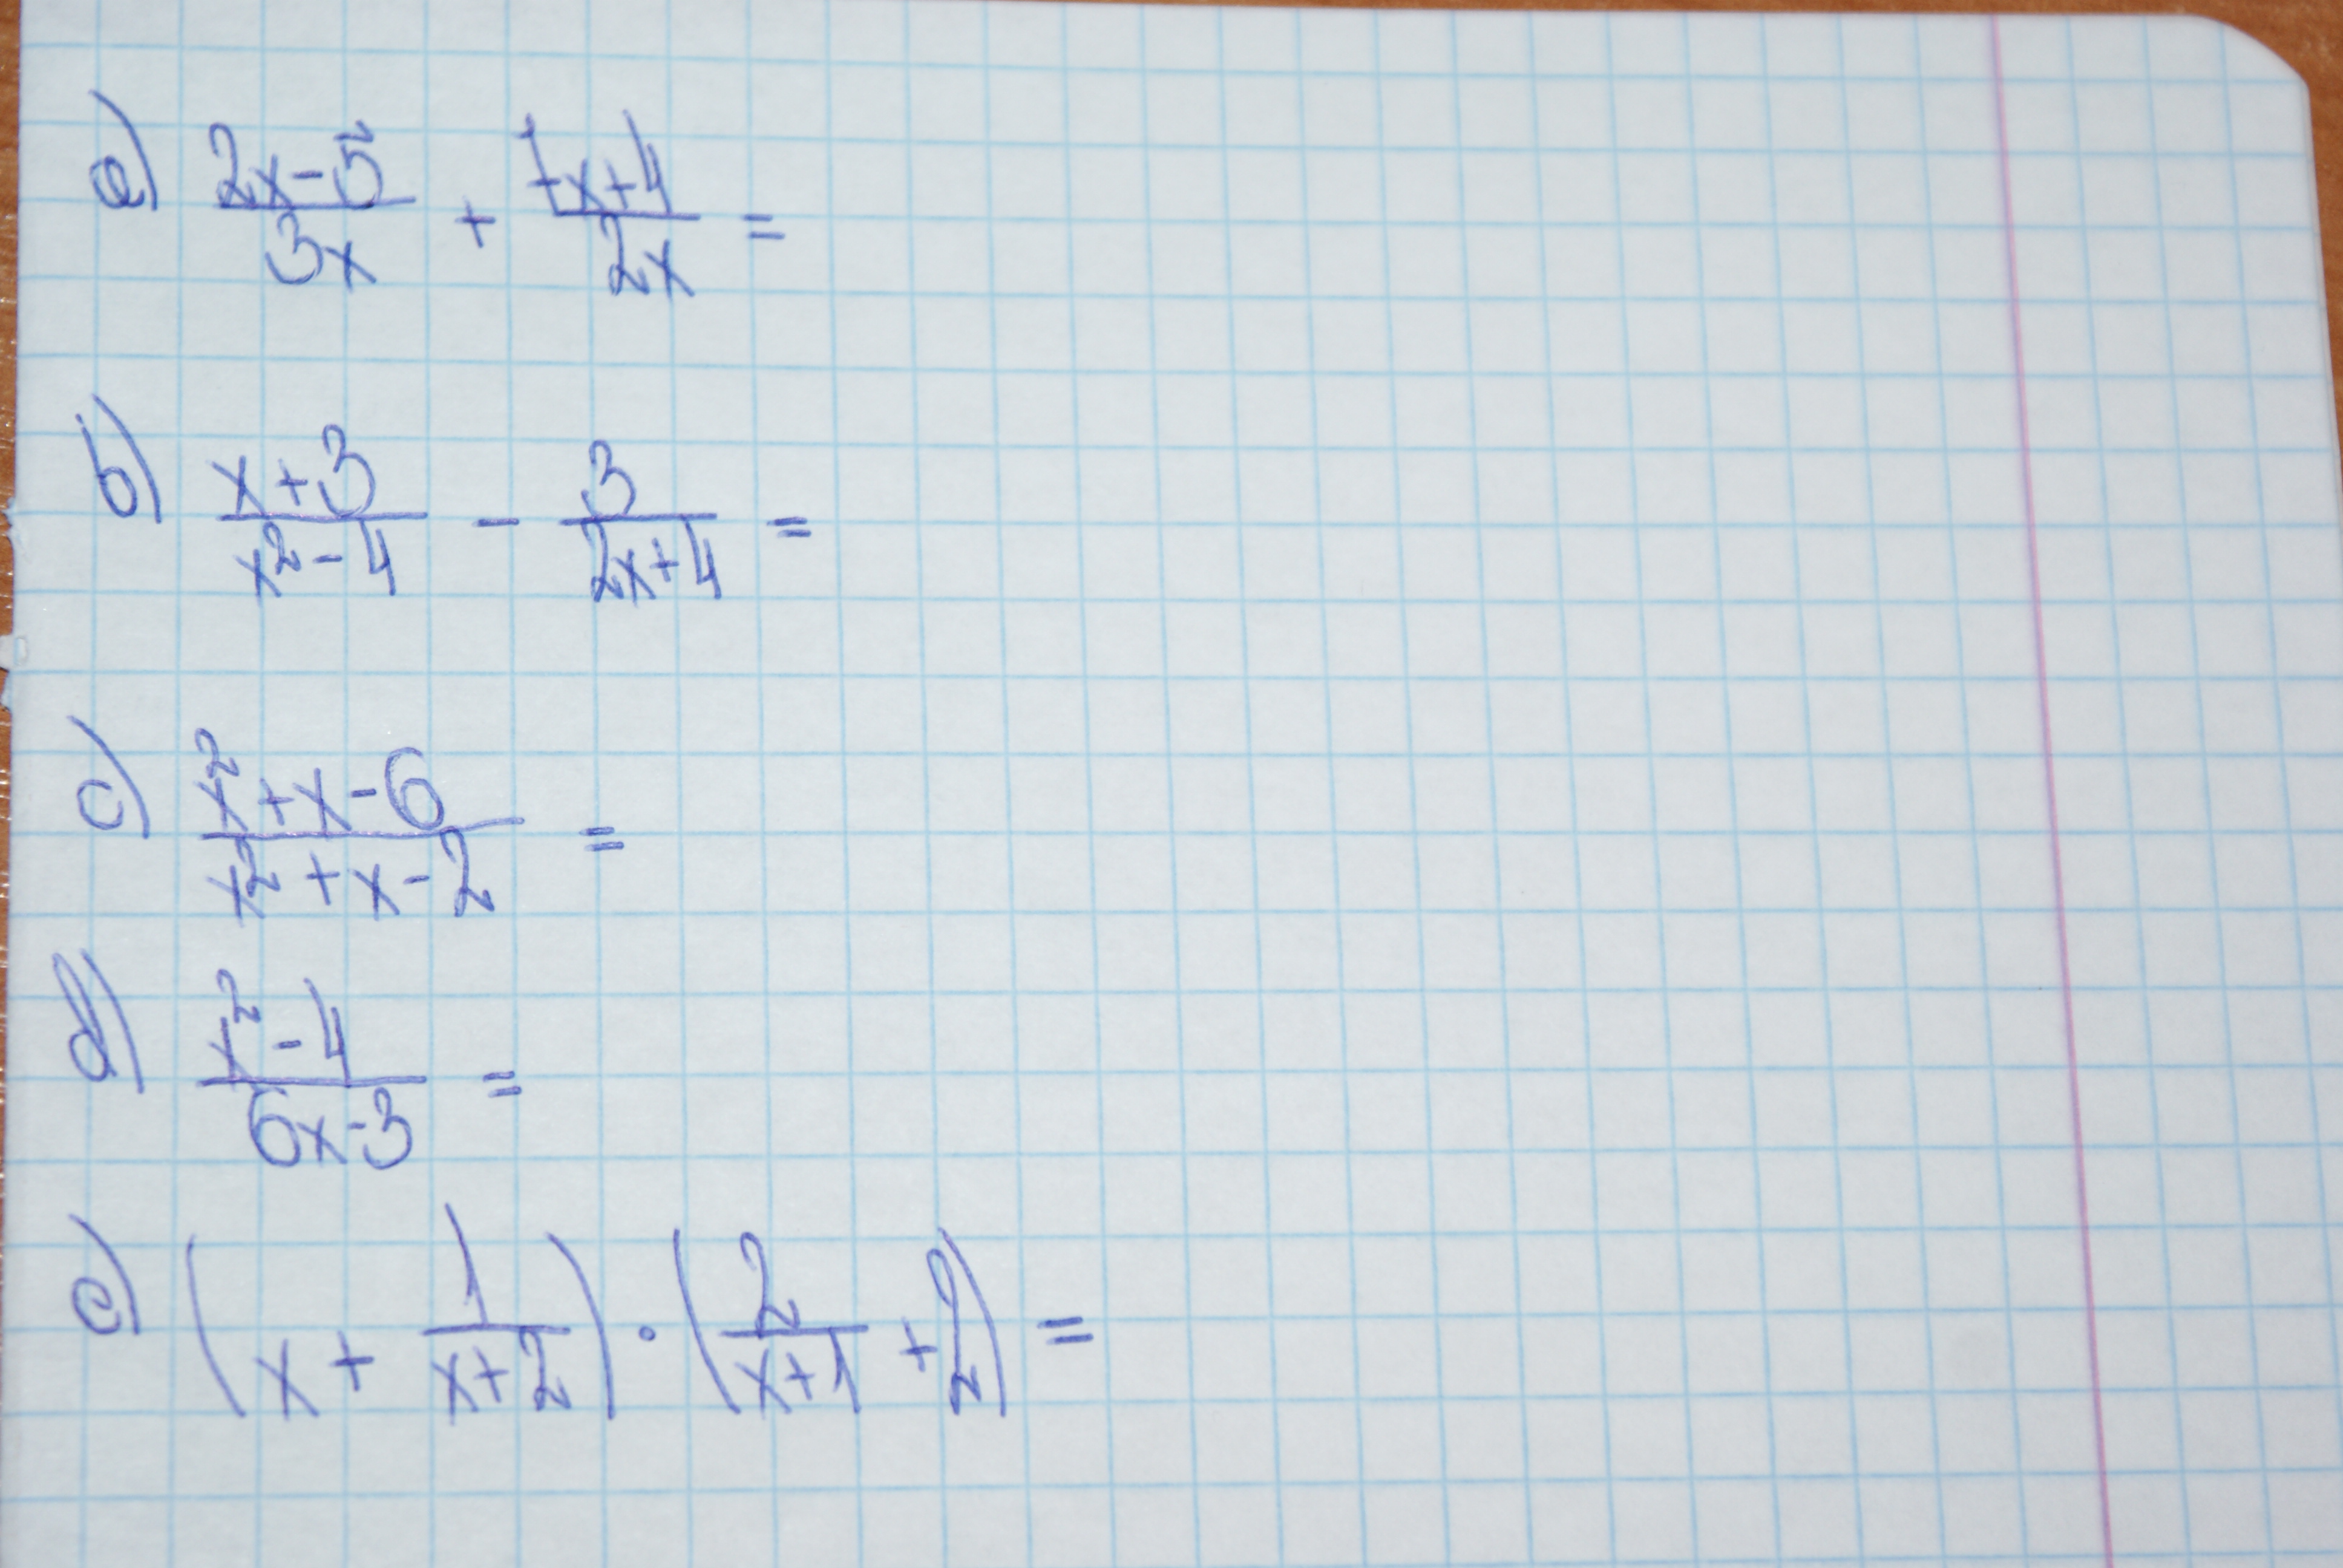 a) (2x-5)/(3x) + (7x+4)/(2x) =
b) (x+3)/(x²-4) - 3/(2x+4) =
c) (x²+x-6)/(x²+x-2) =
d) (x²-4)/(6x-3) =
e) (x + 1/(x+2)) · (2/(x+1) + 2) =